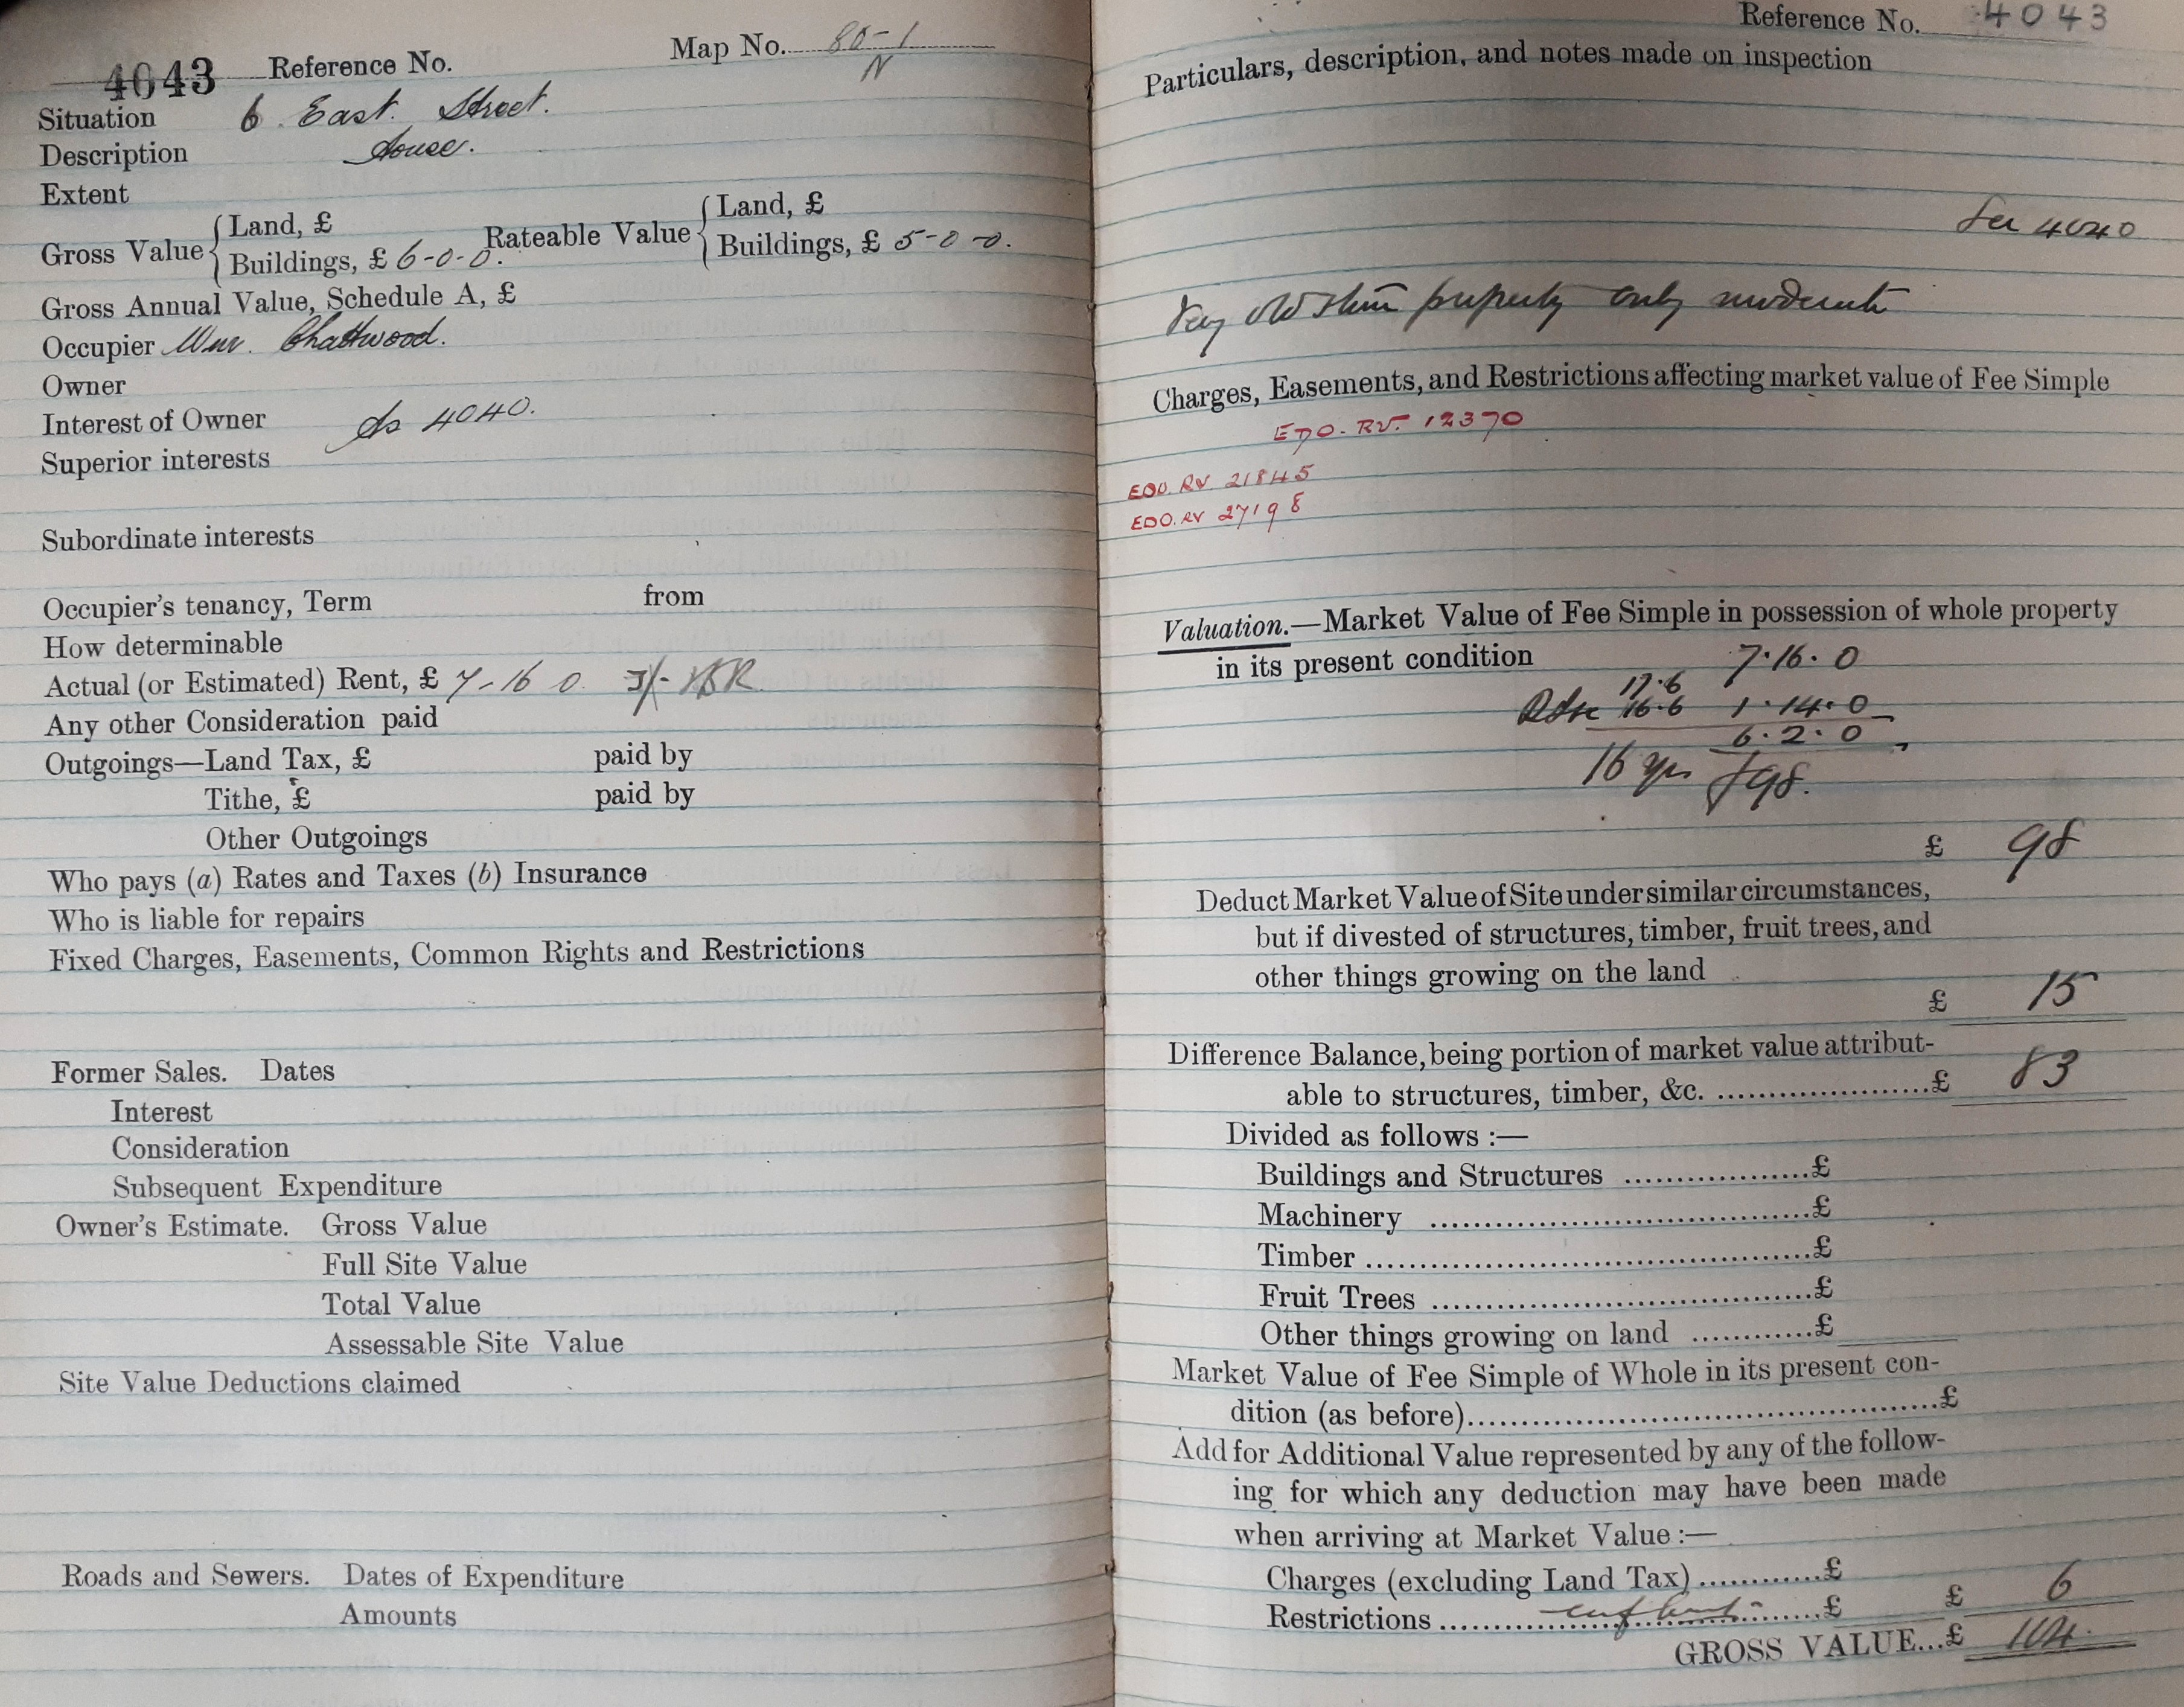 4043 Reference No. Map No. 80-1
N
Situation 6 East Street.
Description House.
Extent
Gross Value { Land, £ Rateable Value { Land, £
Buildings, £ 6-0-0. Buildings, £ 5-0-0.
Gross Annual Value, Schedule A, £
Occupier Wm. Chattwood.
Owner
Interest of Owner As 4040.
Superior interests
Subordinate interests
Occupier's tenancy, Term from
How determinable
Actual (or Estimated) Rent, £ 7-16 0 3/-
Any other Consideration paid
Outgoings—Land Tax, £ paid by
Tithe, £ paid by
Other Outgoings
Who pays (a) Rates and Taxes (b) Insurance
Who is liable for repairs
Fixed Charges, Easements, Common Rights and Restrictions
Former Sales. Dates
Interest
Consideration
Subsequent Expenditure
Owner's Estimate. Gross Value
Full Site Value
Total Value
Assessable Site Value
Site Value Deductions claimed
Roads and Sewers. Dates of Expenditure
Amounts
Reference No. 4043
Particulars, description, and notes made on inspection
See 4040
Very old slum property only moderate
Charges, Easements, and Restrictions affecting market value of Fee Simple
EDO. RV. 12370
EDO. RV 21845
EDO. RV 27198
Valuation.—Market Value of Fee Simple in possession of whole property
in its present condition 7.16.0
17.6
16.6 1.14.0
6.2.0
16 yrs £98.
£ 98
Deduct Market Value of Site under similar circumstances,
but if divested of structures, timber, fruit trees, and
other things growing on the land
£ 15
Difference Balance, being portion of market value attribut-
able to structures, timber, &c. ....................£ 83
Divided as follows :—
Buildings and Structures ..................£
Machinery ......................................£
Timber .............................................£
Fruit Trees ......................................£
Other things growing on land ............£
Market Value of Fee Simple of Whole in its present con-
dition (as before)................................................£
Add for Additional Value represented by any of the follow-
ing for which any deduction may have been made
when arriving at Market Value :—
Charges (excluding Land Tax) ............£
Restrictions ......................................£ £ 6
GROSS VALUE...£ 104.